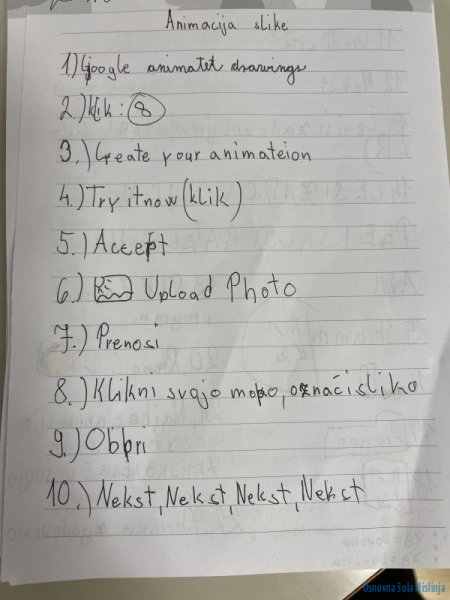 Animacija slike
1.) Google animatet drawings
2.) Klik: 8
3.) Create your animateion
4.) Try itnow (klik)
5.) Accept
6.) Upload Photo
7.) Prenosi
8.) Klikni svojo mapo, označi sliko
9.) Odpri
10.) Nekst, Nekst, Nekst, Nekst
Osnovna šola Mislinja